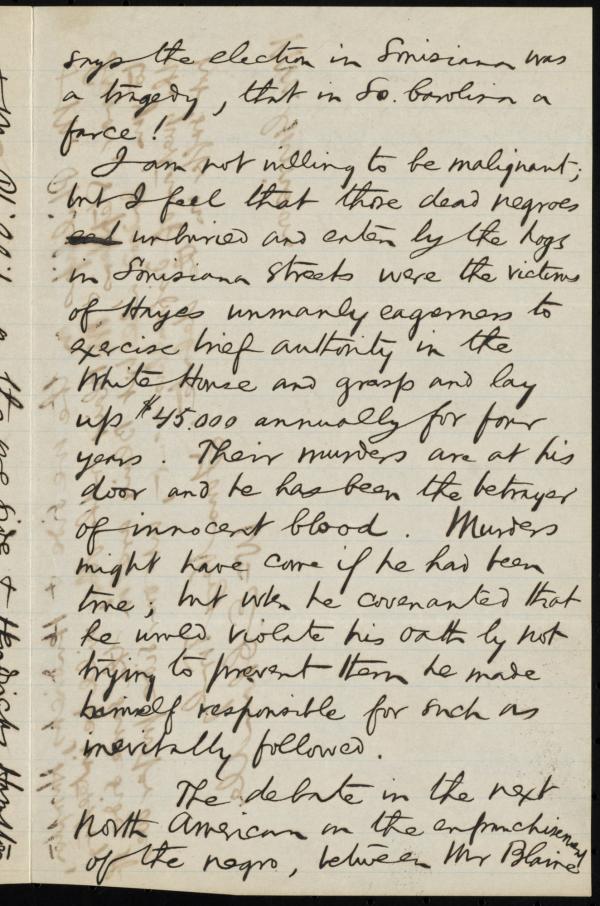 says the election in Louisiana was
a tragedy, that in So. Carolina a
farce!
I am not willing to be malignant;
but I feel that those dead negroes
unburied and eaten by the hogs
in Louisiana streets were the victims
of Hayes unmanly eagerness to
exercise brief authority in the
White House and grasp and lay
up $45.000 annually for four
years. Their murders are at his
door and he has been the betrayer
of innocent blood. Murders
might have come if he had been
true; but when he covenanted that
he would violate his oath by not
trying to prevent them he made
himself responsible for such as
inevitably followed.
The debate in the next
North American on the enfranchisement
of the negro, between Mr Blaine